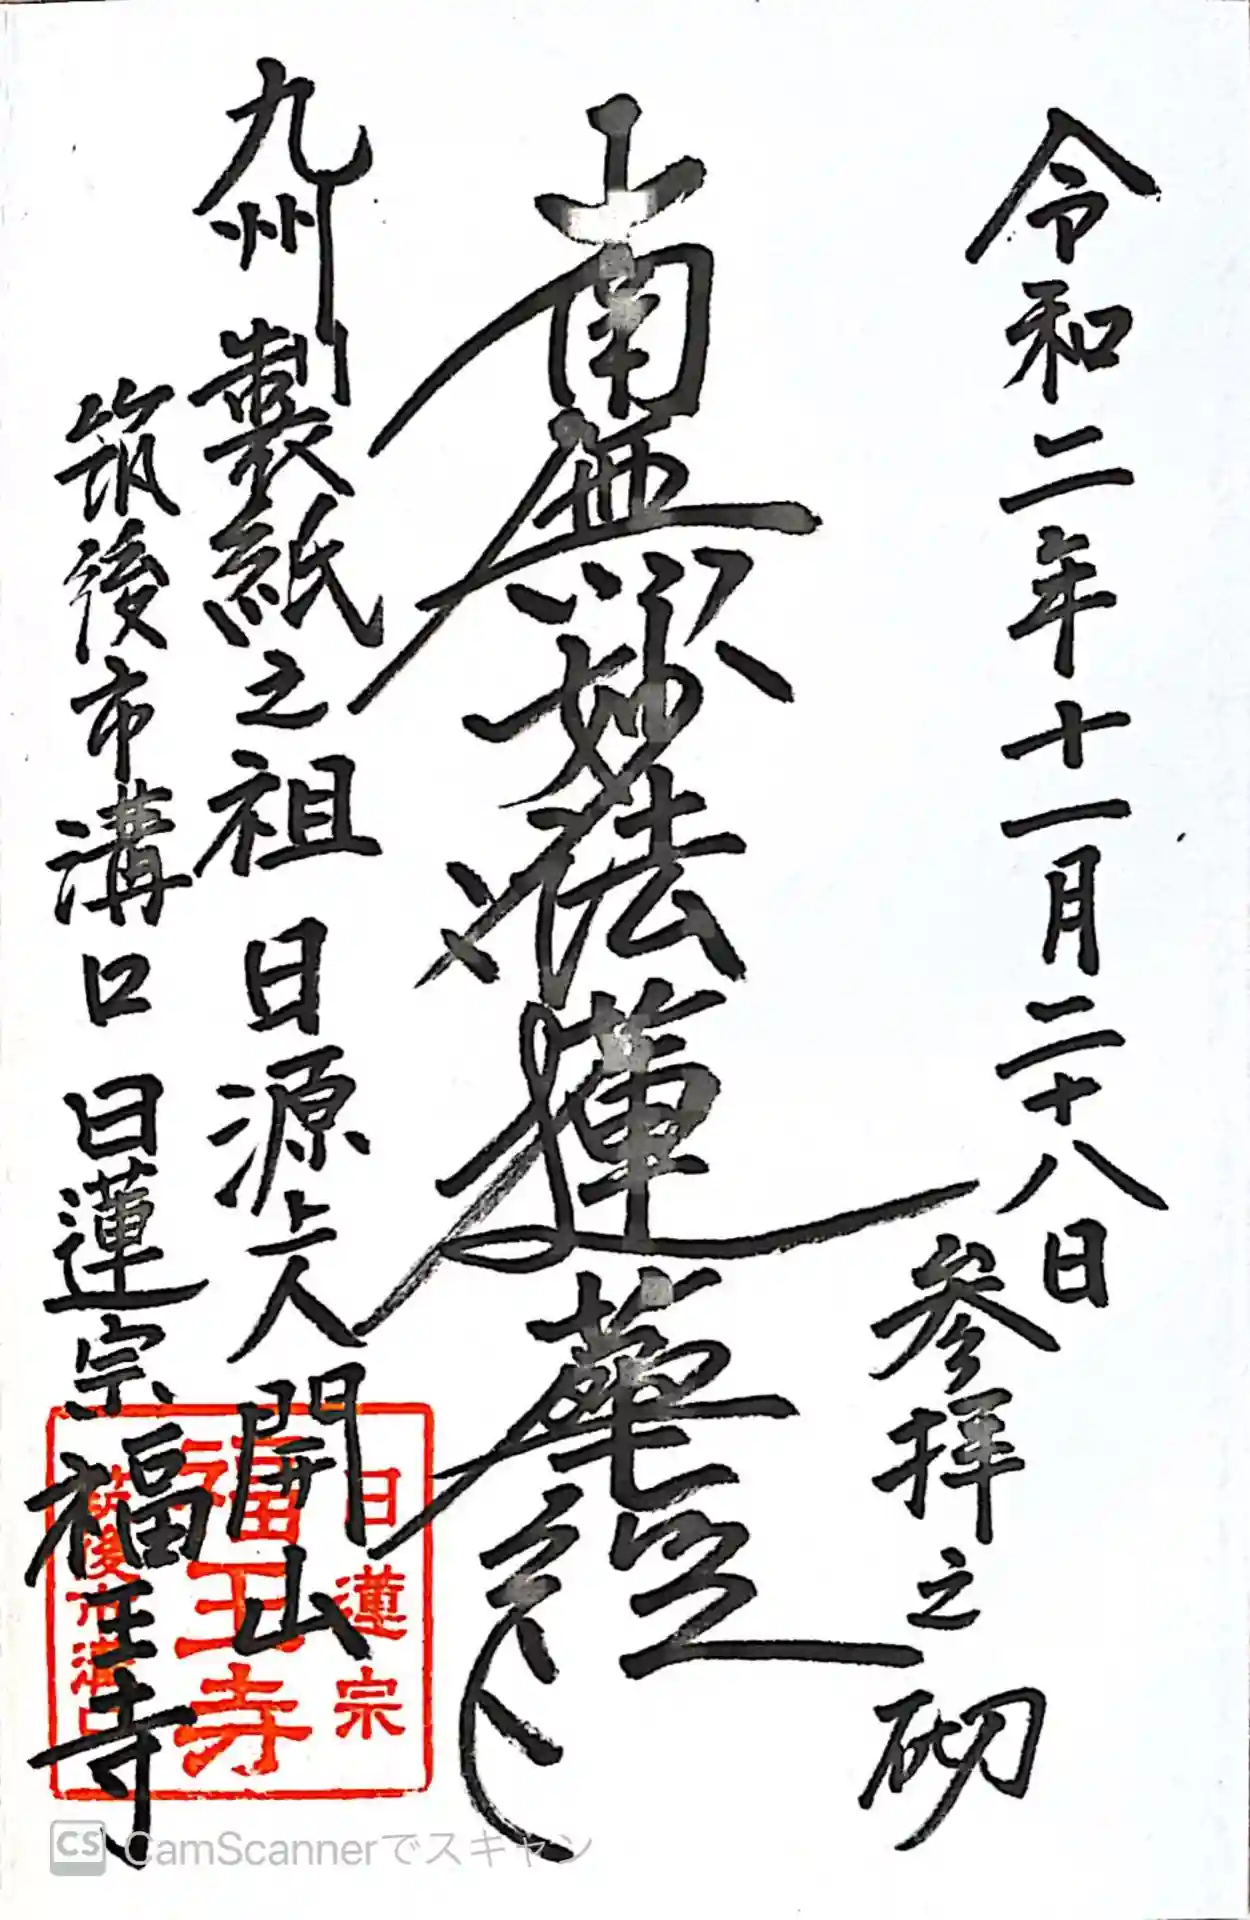 令和二年十一月二十八日
参拝之砌
南無妙法蓮華経
九州製紙之祖 日源上人 開山
筑後市溝口 日蓮宗 福王寺
日蓮宗
福王寺
筑後市溝口
CS CamScannerでスキャン